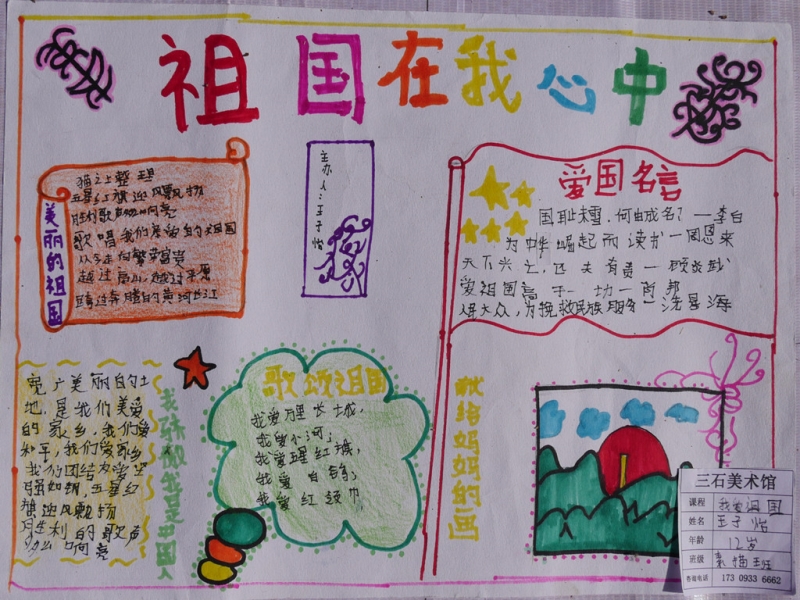 祖国在我心中
美丽的祖国
五星红旗迎风飘扬
胜利歌声多么响亮
歌唱我们亲爱的祖国
从今走向繁荣富
越过高山 越过平原
跨过奔腾的黄河长江
主办人：王子怡
爱国名言
国耻未雪，何由成名？一李白
为中华崛起而读书一周恩来
天下兴亡，匹夫有责一顾炎武
爱祖国高于一切一肖邦
人民大众，为挽救民族服务一冼星海
宽广美丽的土
地，是我们亲爱
的家乡，我们爱
和平，我们爱家乡
我们团结友爱坚
强如钢，五星红
旗迎风飘扬
胜利的歌声
多么响亮
我骄傲我是中国人
歌颂祖国
我爱万里长城，
我爱小河；
我爱五星红旗，
我爱白鸽；
我爱红领巾
献给妈妈的画
三石美术馆
课程 我爱祖国
姓名 王子怡
年龄 12岁
班级 素描王班
咨询电话 173 0933 6662